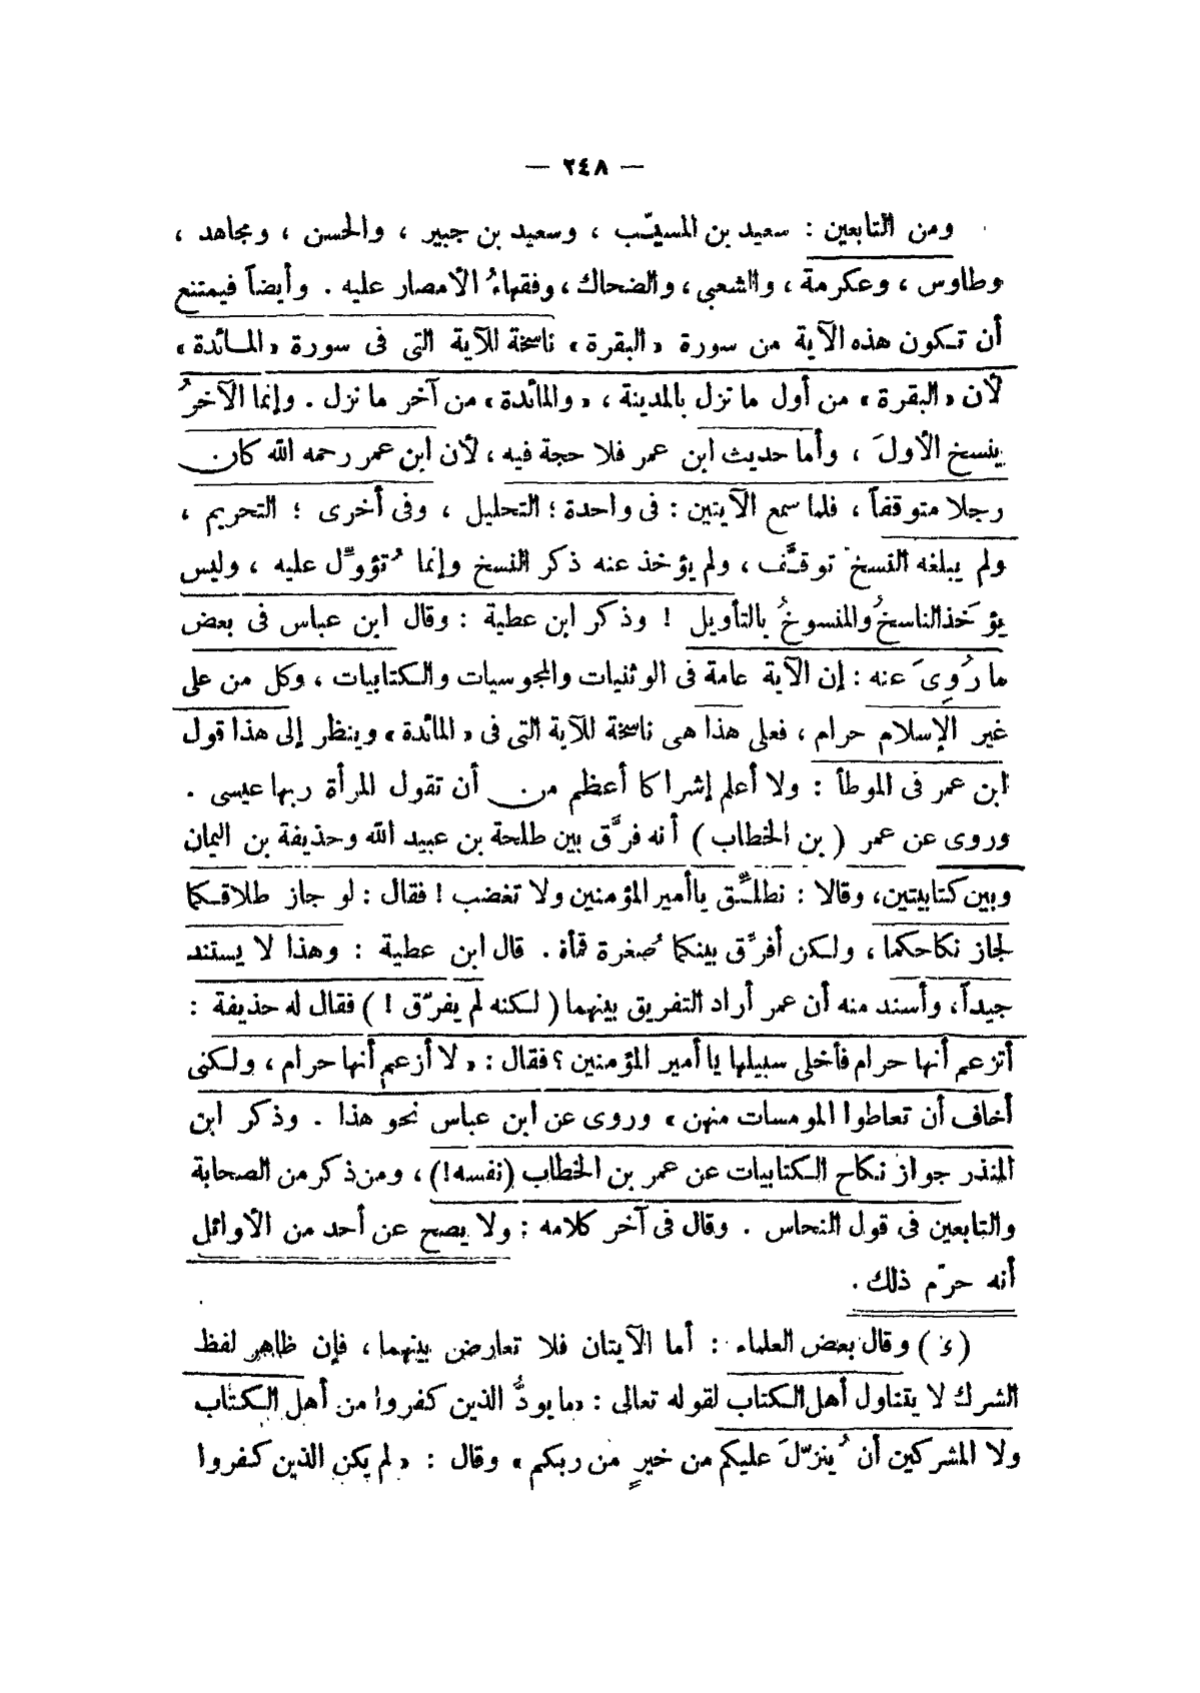 — ٢٤٨ —
ومن التابعين : سعيد بن المسيّب ، وسعيد بن جبير ، والحسن ، ومجاهد ،
وطاوس ، وعكرمة ، والشعبي ، والضحاك ، وفقهاءُ الأمصار عليه . وأيضاً فيمتنع
أن تكون هذه الآية من سورة « البقرة » ناسخة للآية التى فى سورة « المائدة »
لأن « البقرة » من أول ما نزل بالمدينة ، « والمائدة » من آخر ما نزل . وإنما الآخرُ
ينسخ الأولَ ، وأما حديث ابن عمر فلا حجة فيه ، لأن ابن عمر رحمه الله كان
رجلا متوقفاً ، فلما سمع الآيتين : فى واحدة ؛ التحليل ، وفى أخرى ؛ التحريم ،
ولم يبلغه النسخ توقَّف ، ولم يؤخذ عنه ذكر النسخ وإنما تُؤوِّل عليه ، وليس
يؤخَذ الناسخُ والمنسوخُ بالتأويل ! وذكر ابن عطية : وقال ابن عباس فى بعض
ما رُوِىَ عنه : إن الآية عامة فى الوثنيات والمجوسيات والكتابيات ، وكل من على
غير الإسلام حرام ، فعلى هذا هى ناسخة للآية التى فى « المائدة » وينظر إلى هذا قول
ابن عمر فى الموطأ : ولا أعلم إشراكا أعظم من أن تقول المرأة ربها عيسى .
وروى عن عمر ( بن الخطاب ) أنه فرَّق بين طلحة بن عبيد الله وحذيفة بن اليمان
وبين كتابيتين، وقالا : نطلِّق يا أمير المؤمنين ولا تغضب ! فقال : لو جاز طلاقكما
لجاز نكاحكما ، ولكن أفرِّق بينكما صُغرة قمأة . قال ابن عطية : وهذا لا يستند
جيداً، وأسند منه أن عمر أراد التفريق بينهما ( لكنه لم يفرّق ! ) فقال له حذيفة :
أتزعم أنها حرام فأخلى سبيلها يا أمير المؤمنين ؟ فقال : « لا أزعم أنها حرام ، ولكنى
أخاف أن تعاطوا المومسات منهن » وروى عن ابن عباس نحو هذا . وذكر ابن
المنذر جواز نكاح الكتابيات عن عمر بن الخطاب (نفسه!) ، ومن ذكر من الصحابة
والتابعين فى قول النحاس . وقال فى آخر كلامه : ولا يصح عن أحد من الأوائل
أنه حرّم ذلك .
وقال بعض العلماء : أما الآيتان فلا تعارض بينهما ، فإن ظاهر لفظ
الشرك لا يتناول أهل الكتاب لقوله تعالى : « ما يودُّ الذين كفروا من أهل الكتاب
ولا المشركين أن يُنزّلَ عليكم من خيرٍ من ربكم » وقال : « لم يكن الذين كفروا